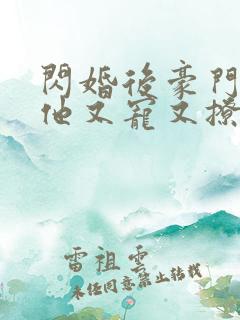 閃婚後豪門
他又寵又撩
雷祖雲
未任同意禁止轉載